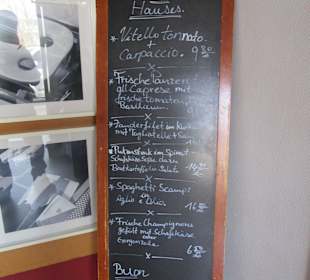 Hauses.
* Vitello tonnato.
+
Carpaccio. 9 80
x
* Frische Panzerotti
gli Caprese mit
frische tomaten,
Basilikum.
x
* Zanderfilet im
mit Tagliatelle + Sauce
x
* Putensteak im Spinat
Schafskäse dazu
Bratkartoffeln Salate 14
x
* Spaghetti Scampi
Aglio e Olio 14
x
* Frische Champignons
gefüllt mit Schafskäse
oder
Gorgonzola 6
x
Buon